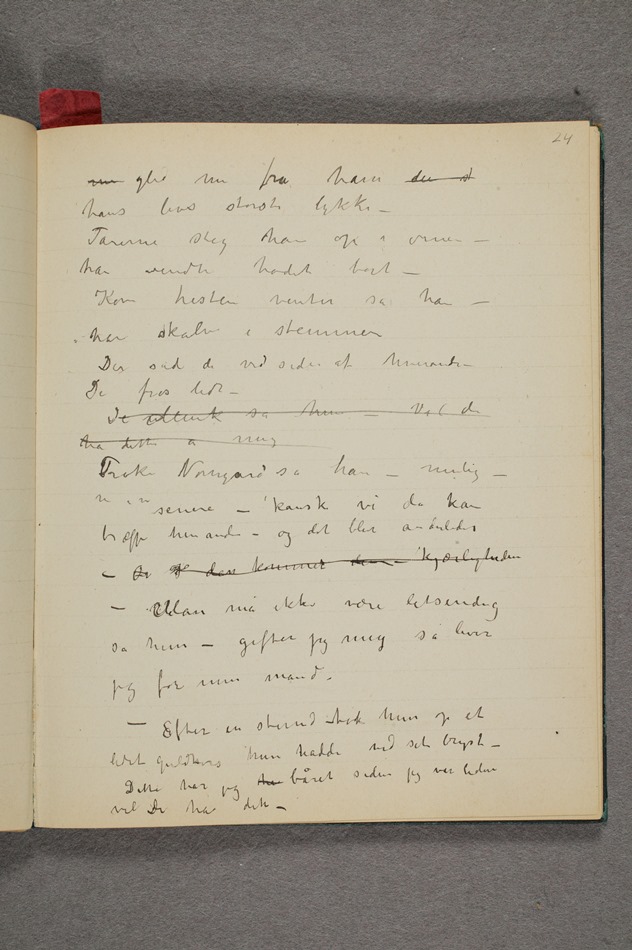 24
nu glie nu fra ham der st
hans livs største lykke –
Tarerne steg ham op i ørnene –
han vendte hodet bort –
Kom hesten venter sa han –
han skalv i stemmen
Der sad de ved siden af hverandre
De frøs lidt –
De sa hun – Vil de
ha dette a mig
Frøken Norngård sa han – mulig –
senere – kansk vi da kan
træffe hinanden – og det blir anderledes
– den kommer den – kjærligheden
– Man må ikke være letsendig
sa hun – gifter jeg mig så lever
jeg for min mand.
– Efter en stund tok hun op et
lidet guldkors hun hadde ved sit bryst –
Dette har jeg båret siden jeg var liden
vil De ha dette –